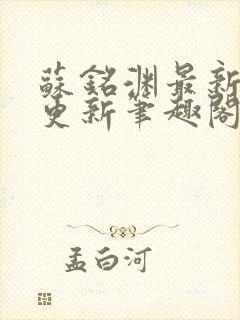 蘇銘淵最新
更新筆趣閣
孟白河